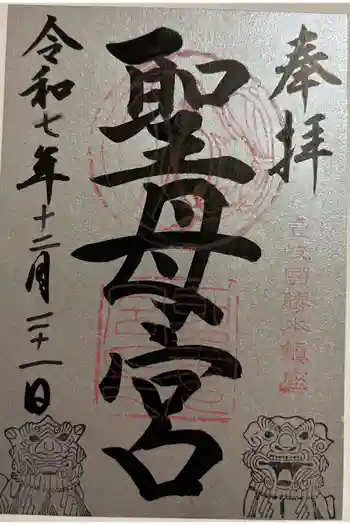 奉拝
壱岐国勝本鎮座
聖母宮
令和七年十二月二十一日